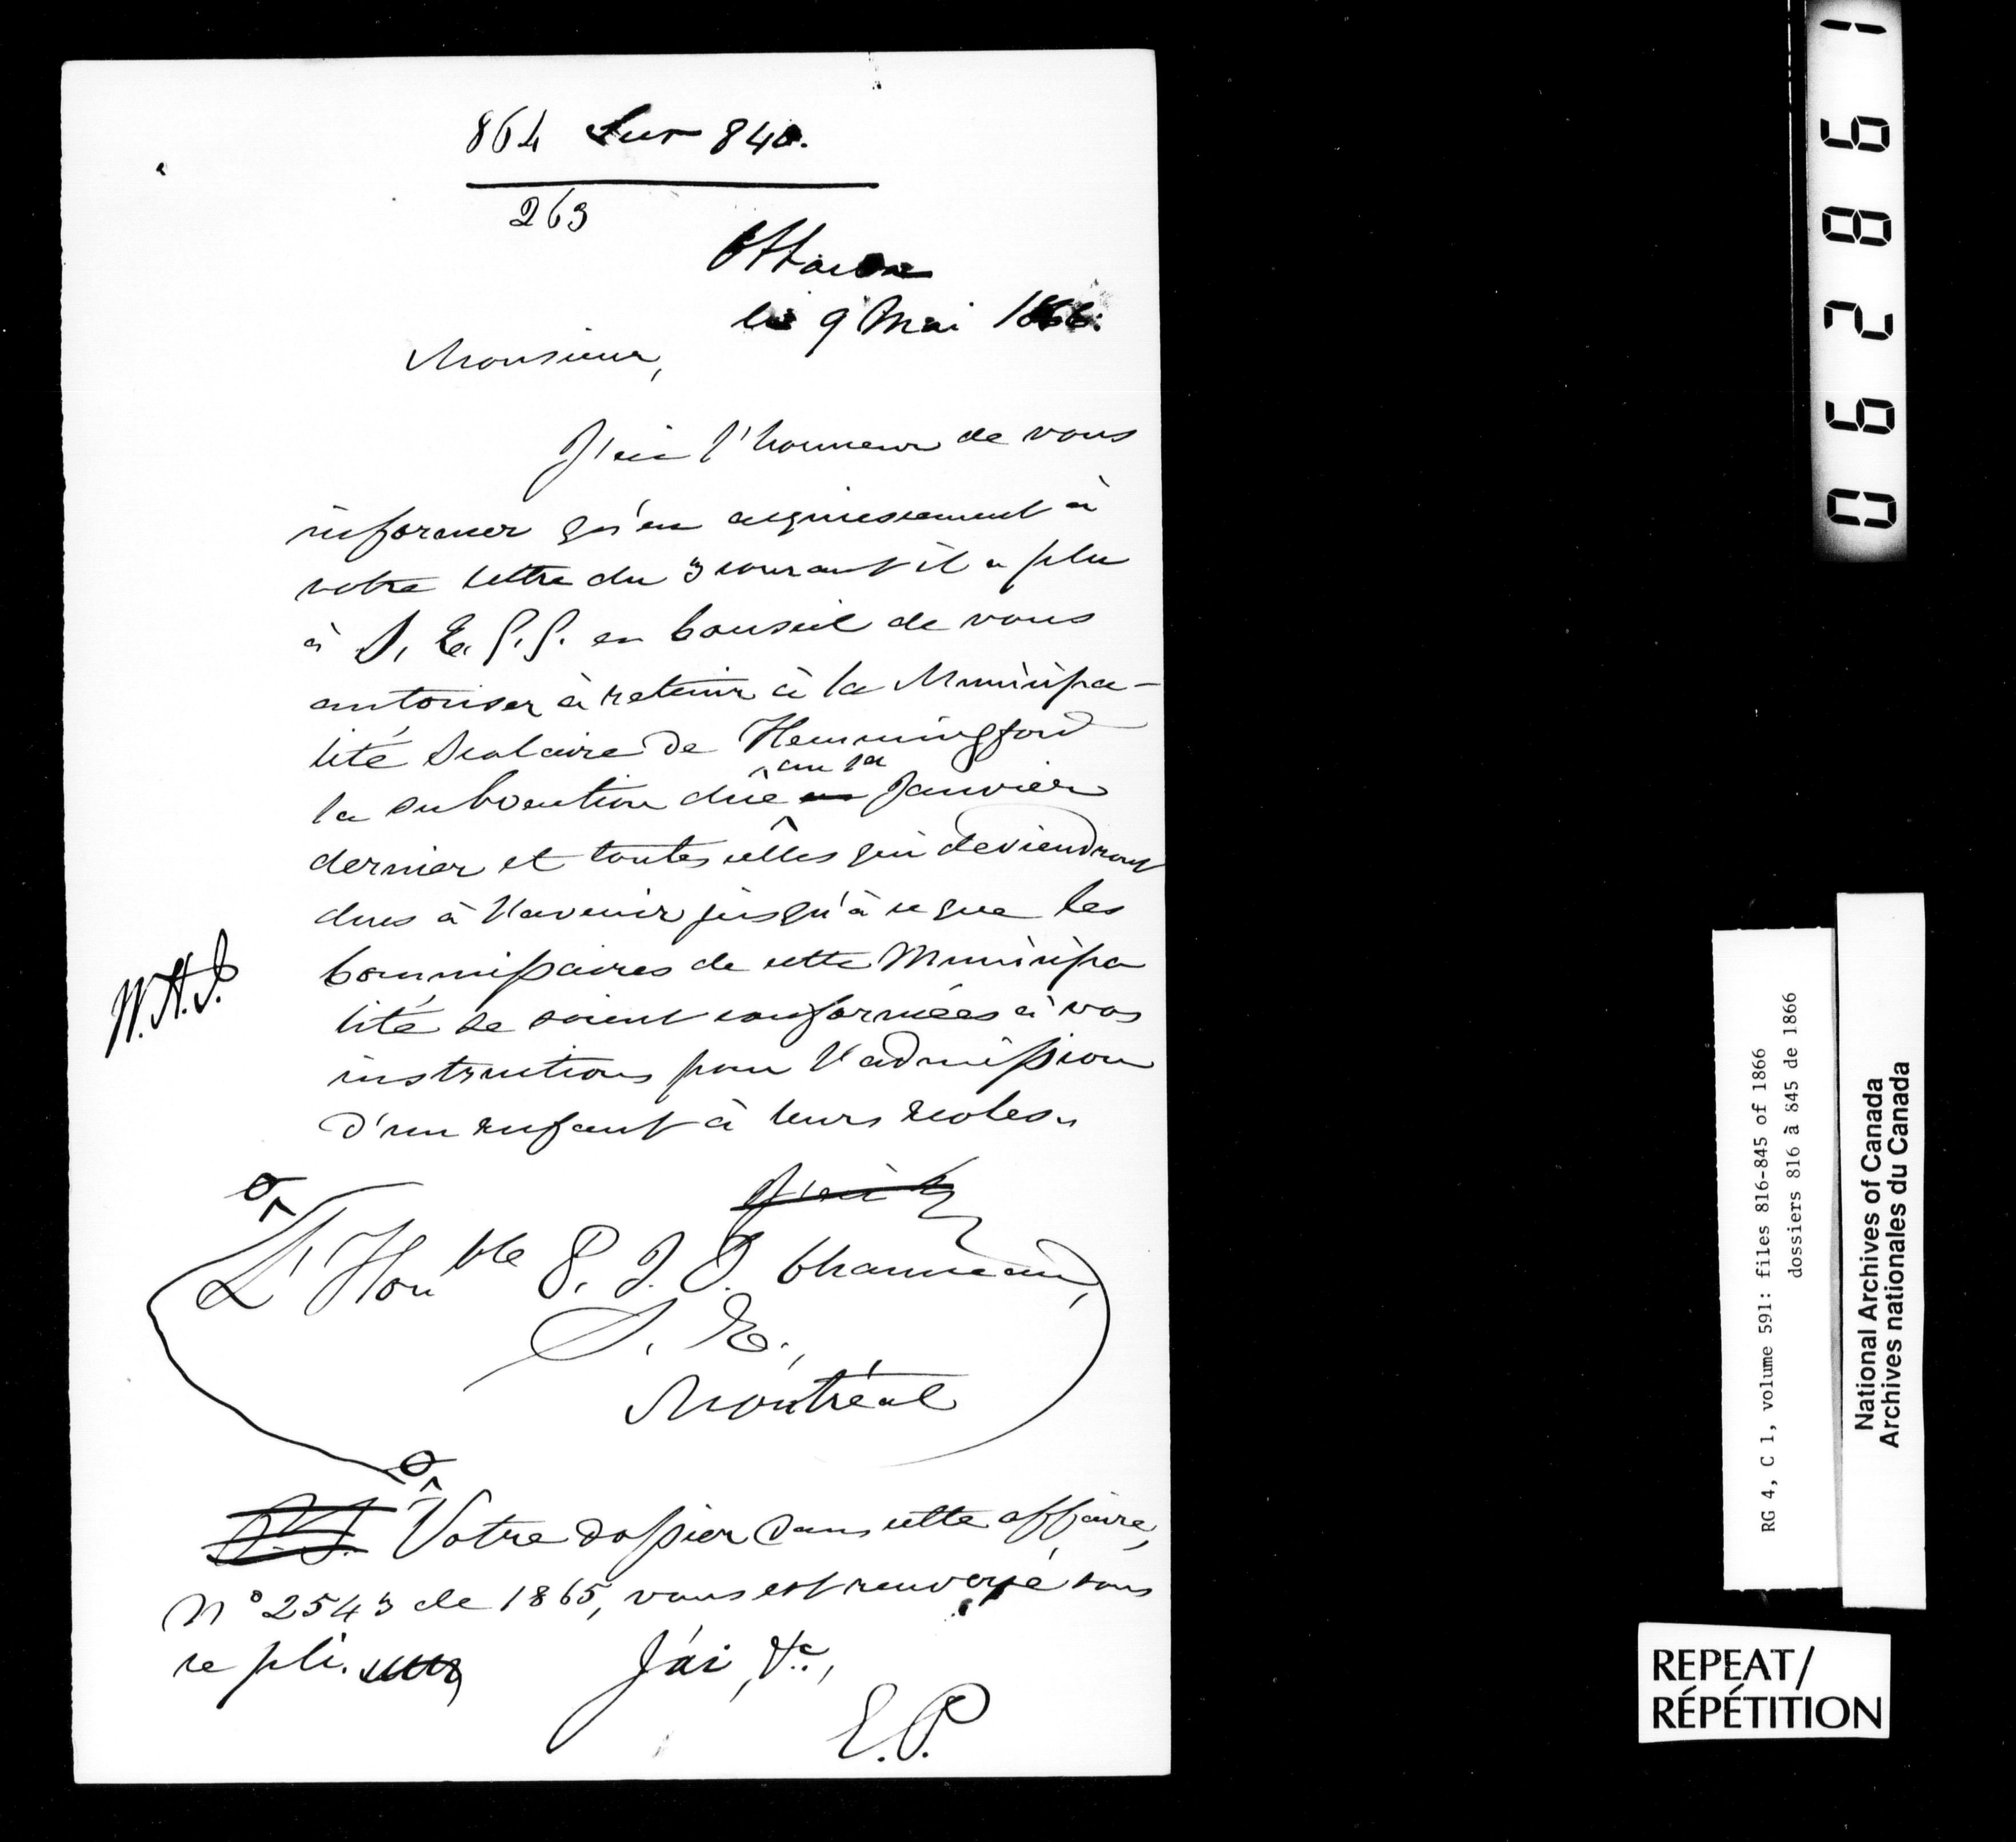 864 Sur 840.
263
Ottawa
le 9 Mai 1866.
Monsieur,
J'ai l'honneur de vous
informer qu'en acquiescement à
votre lettre du 3 courant il a plu
à S. E. G. G. en Conseil de vous
autoriser à retenir à la Municipa-
lité Scolaire de Hemmingford
au 1er
la subvention due en Janvier
dernier et toutes celles qui deviendront
dues à l'avenir jusqu'à ce que les
Commissaires de cette Municipa
lité se soient conformées à vos
instructions pour l'admission
d'un enfant à leurs écoles.
W.H.J.
J'ai
L'Honble P. J. O. Chauveau,
S. E.,
Montréal
P.S. Votre dossier dans cette affaire,
No 2543 de 1865, vous est renvoyé sous
ce pli.
J'ai, &c.,
E.P.
062861
RG 4, C 1, volume 591: files 816-845 of 1866
dossiers 816 à 845 de 1866
National Archives of Canada
Archives nationales du Canada
REPEAT/
RÉPÉTITION